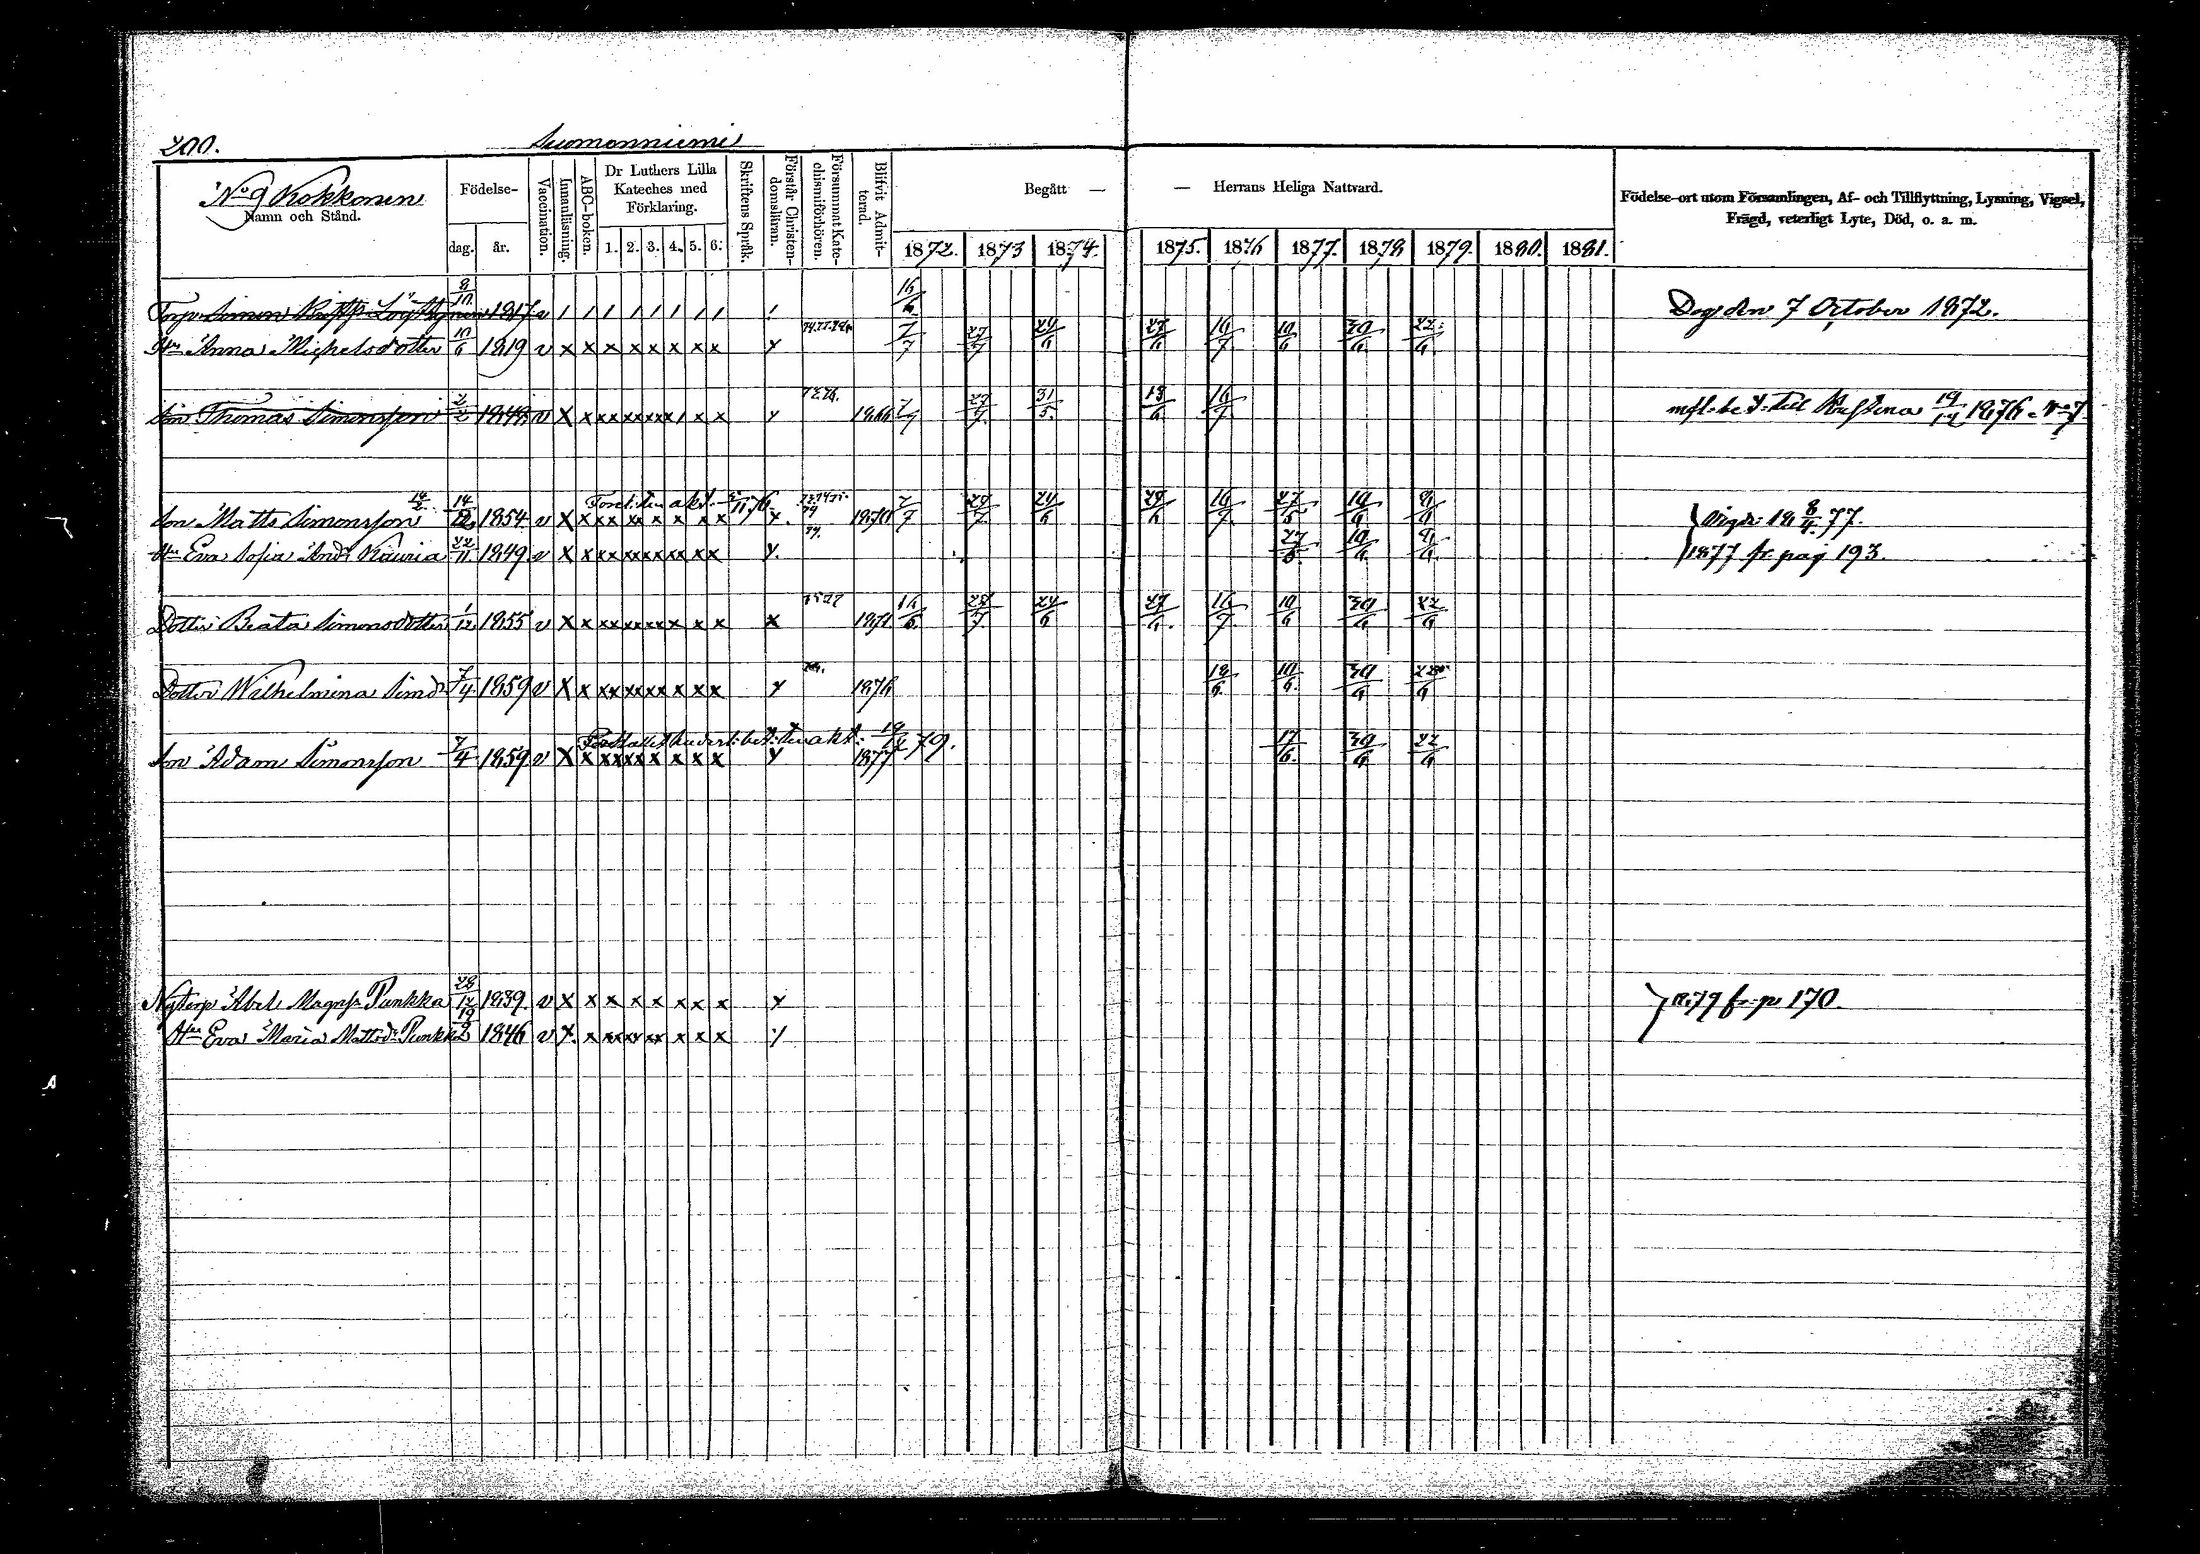 200. Suomenniemi
No 9 Kokkonen
Namn och Stånd. Födelse- dag. år. Vaccination. Innanläsning. ABC-boken. Dr Luthers Lilla Kateches med Förklaring. 1. 2. 3. 4. 5. 6. Skriftens Språk. Förstår Christendomsläran. Försummat Katechismiförhören. Blifvit Admitterad. Begått — — Herrans Heliga Nattvard. Födelse-ort utom Församlingen, Af- och Tillflyttning, Lysning, Vigsel, Frägd, veterligt Lyte, Död, o. a. m.
1872. 1873 1874. 1875. 1876 1877. 1878 1879. 1880. 1881.
Torp. Simon 8/10 1817 v / / / / / / / / / 16/6 Dog den 7 October 1872.
Hu Anna Michelsdotter 10/6 1819 v x x x x x x x x y 7/7 27/7 24/6 27/6 16/7 10/6 30/6 22/6
Son Thomas Simonsson 2/2 1849 v X x xx xx xx x / x x y 1866 7/7 27/7 31/5 13/6 16/7 till 19/12 1876
14/2
Son Matts Simonsson 14/12 1854 v X x xx xx x x x x y. 1870 7/7 27/7 24/6 27/6 16/7 27/5 10/6 8/6 Vigd: 18 8/4 77.
Hu Eva Sofia And: Kauria 22/11 1849 v X x xx xx xx x x x y. 27/5 10/6 8/6 1877 fr. pag 193.
Dotter Beata Simonsdotter 1/12 1855 v X x xx xx xx x x x x 1871 16/6 27/7 24/6 27/6 16/7 10/6 30/6 22/6
Dotter Wilhelmina Simd: 7/4 1859 v X x xx xx xx x x x y 1876 18/6 10/6 30/6 22/6
79.
Son Adam Simonsson 7/4 1859 v X x xx xx x x x x y 1877 17/6 30/6 22/6
Nytorp Abel Magnss. Punkka 28/12 1839. v X x x x x x x x y 1879 fr: p: 170.
Hu Eva Maria Mattsdr Punkka 19/2 1846 v x x xx xx xx x x x y